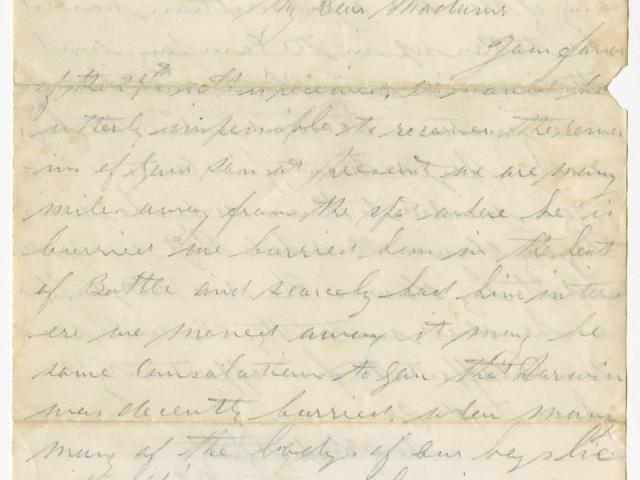 My Dear Madame
Your favor
of the 29th ult is received, it would be
utterly impossible to recover the remai
ins of your son at present we are many
miles away from the spot where he is
burried we burried him in the heat
of Battle and scarcely had him intered
ere we moved away it may be
some Consolation to you that Darwin
was decently burried, when many
many of the bodys of our boys lie